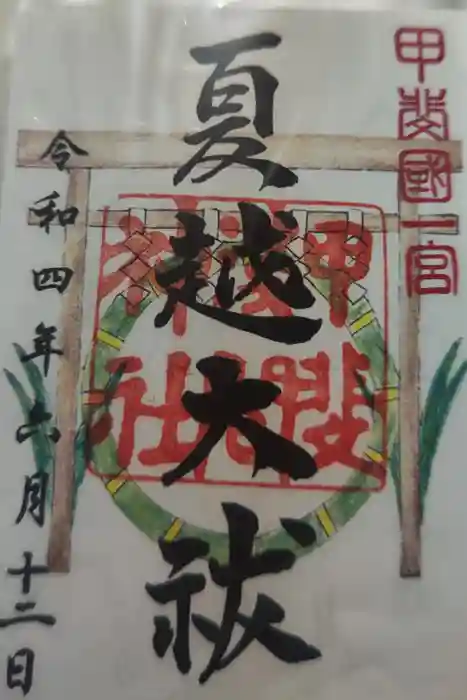 甲斐國一宮
夏越大祓
令和四年六月十二日